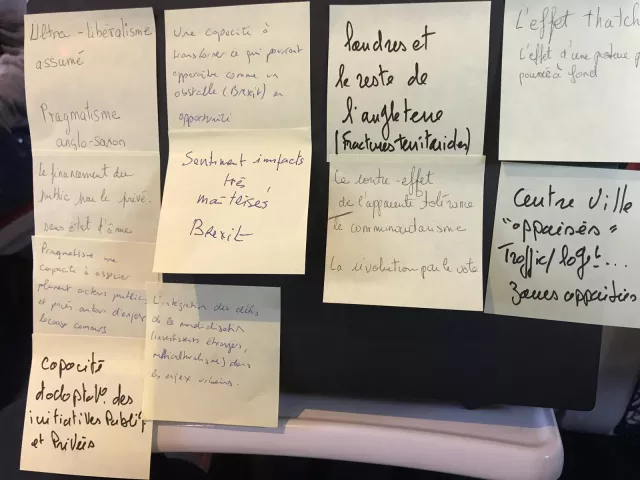 Ultra-libéralisme
assumé
Pragmatisme
anglo-saxon
Le financement du
public par le privé.
sans état d'âme
Pragmatisme une
capacité à associer
plusieurs acteurs publics
et privés autour d'enjeux
locaux communs
capacité
d'adoptat°. des
initiatives Publiq
et Privées
Une capacité à
transformer ce qui pourrait
apparaître comme un
obstacle (Brexit) en
opportunité
Sentiment impacts
très
maîtrisés
Brexit
L'intégration des défis
de la mondialisation
(investisseurs étrangers,
multiculturalisme) dans
les enjeux urbains.
Londres et
le reste de
l'angleterre
(Fractures territoriales)
Le contre-effet
de l'apparente tolérance
le communautarisme
La révolution par le vote
L'effet thatch
L'effet d'une
poussée à fond
Centre ville
"appaisés"
Traffic/logt...
zones appaisées